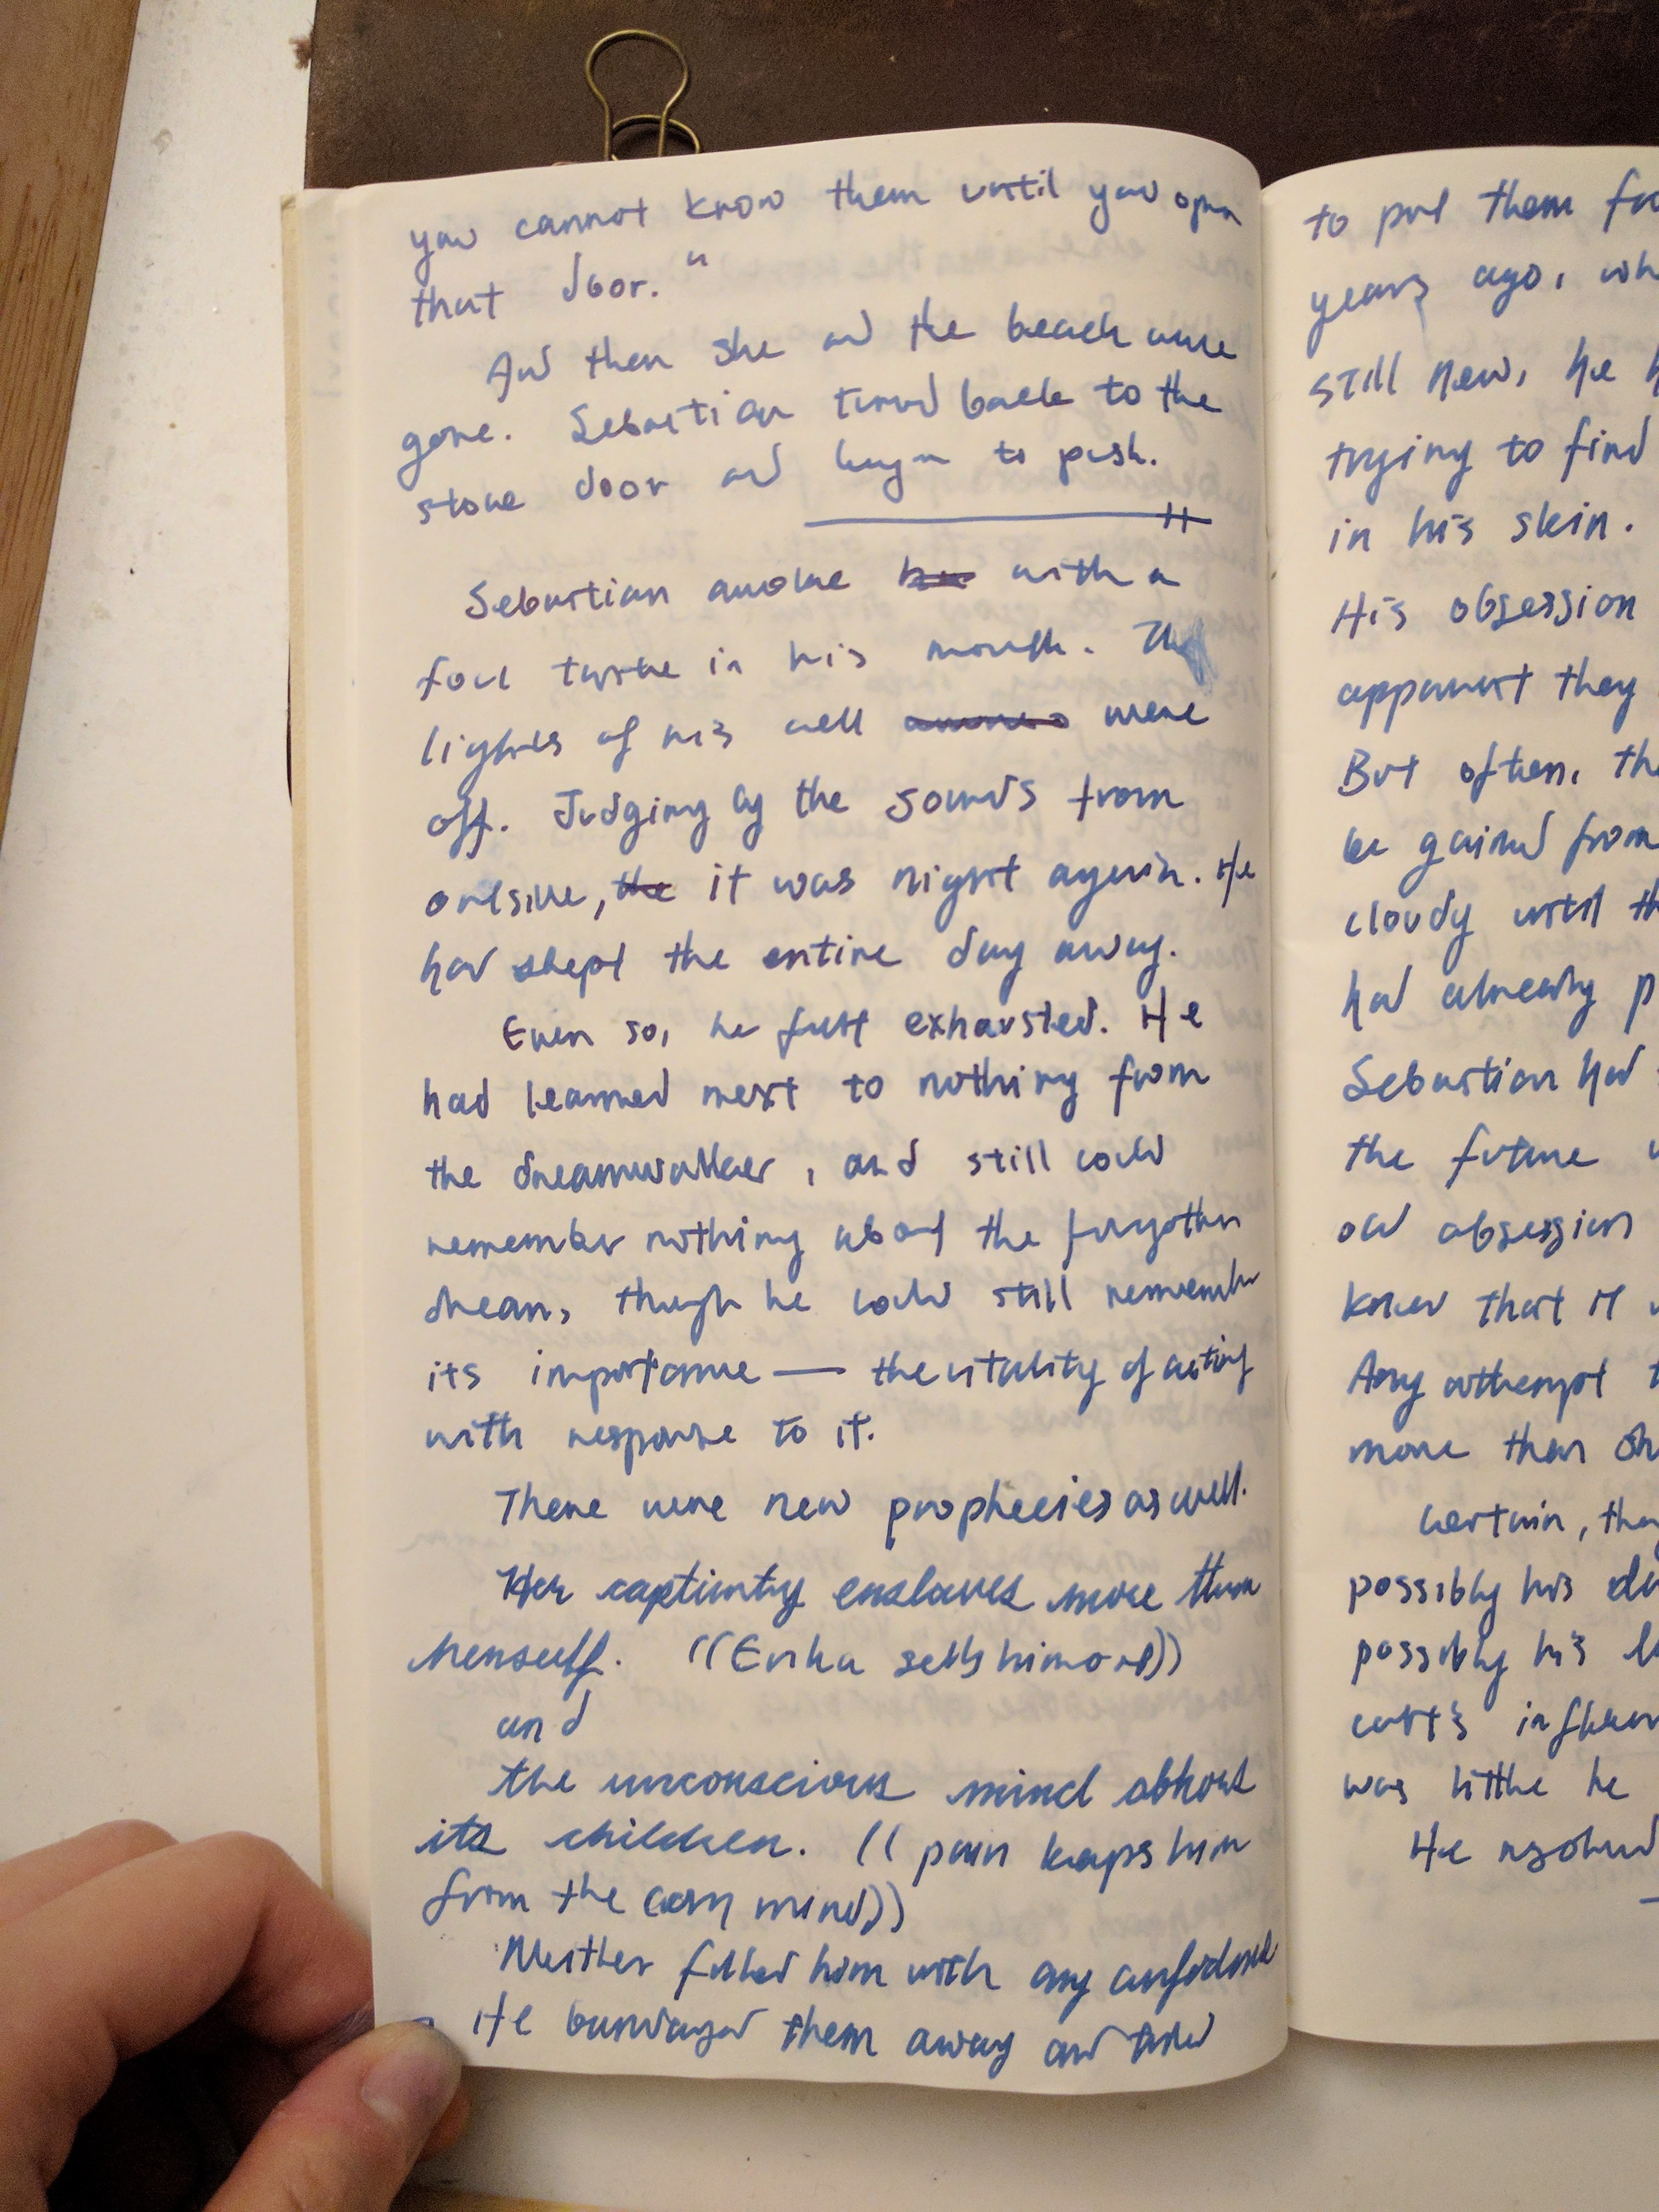 you cannot know them until you open
that door."
And then she and the beach were
gone. Sebastian turned back to the
stone door and began to push.
Sebastian awoke with a
foul taste in his mouth. The
lights of his cell were
off. Judging by the sounds from
outside, the it was night again. He
had slept the entire day away.
Even so, he felt exhausted. He
had learned next to nothing from
the dreamwalker, and still could
remember nothing about the forgotten
dream, though he could still remember
its importance — the vitality of acting
with response to it.
There were new prophecies as well.
Her captivity enslaves more than
herself. ((Erika sells him out))
and
the unconscious mind abhors
its children. ((pain keeps him
from the mind))
Neither filled him with any confidence
He bandaged them away and tried
to put them
years ago,
still new, he
trying to find
in his skin.
His obsession
apparent they
But often,
be gained from
cloudy until
had already
Sebastian had
the future
old obsession
knew that it
Any attempt
more than
Certain,
possibly his
possibly his
was little he
He resolved